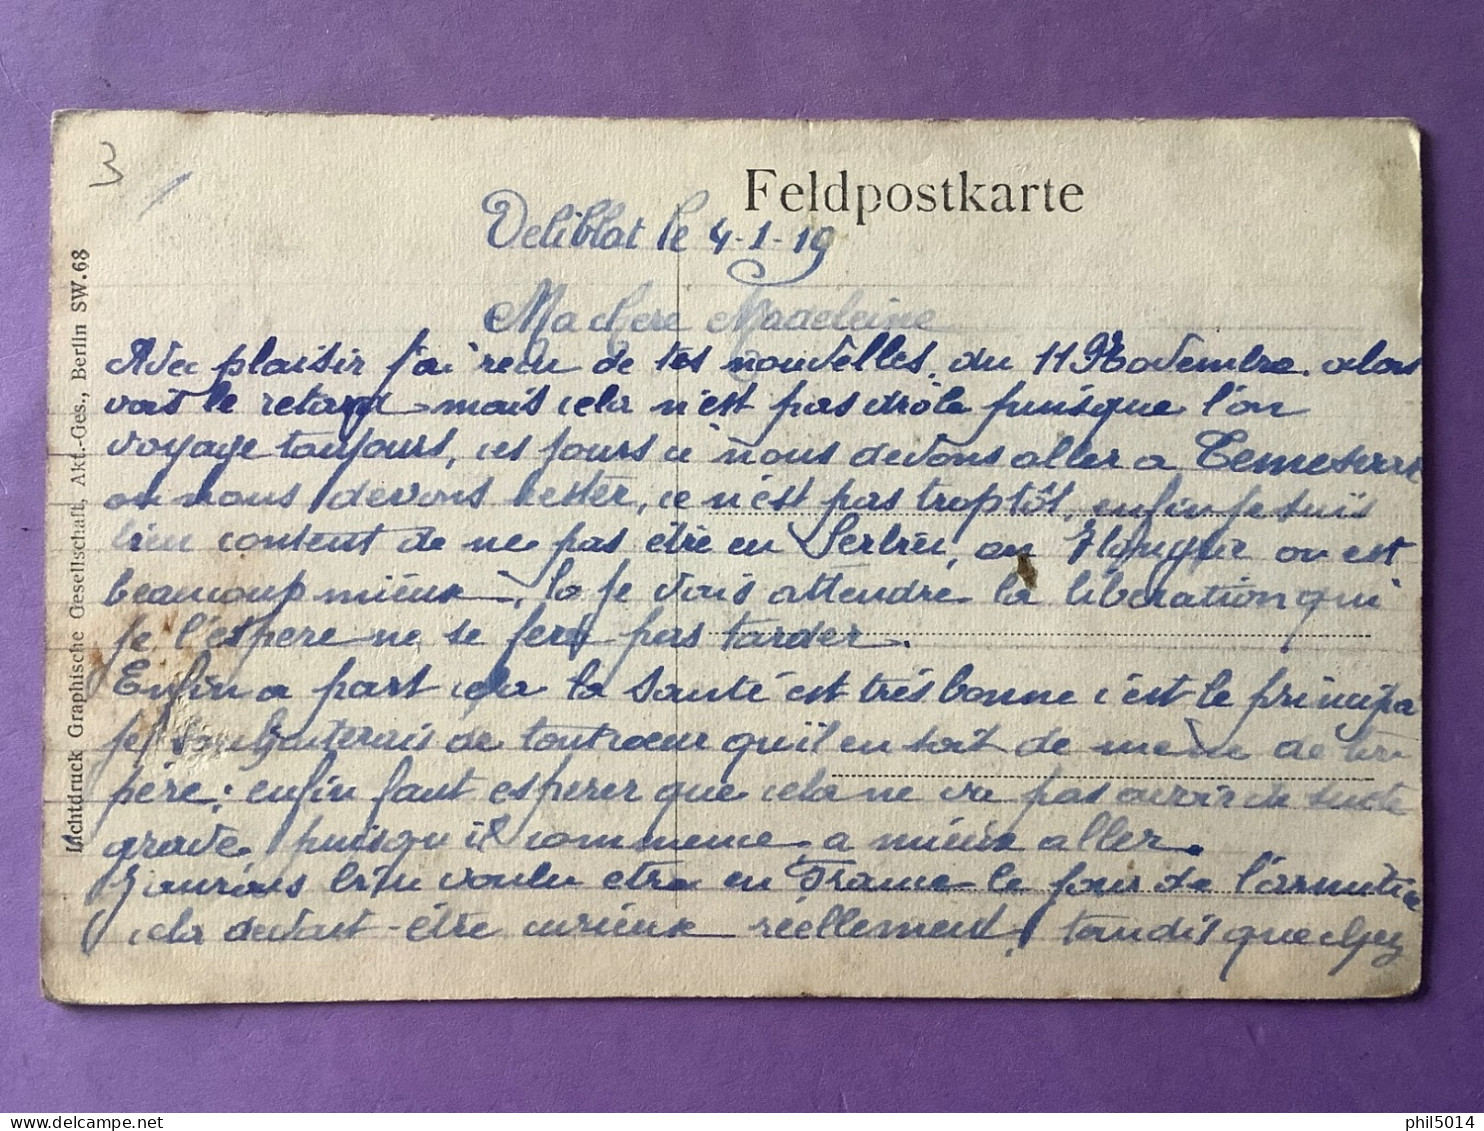 3
Feldpostkarte
Lichtdruck Graphische Gesellschaft, Akt.-Ges., Berlin SW.68
Deliblat le 4-1-19
Ma chere Madeleine
Avec plaisir j'ai recu de tes nouvelles. du 11 Novembre. alors
vois le retard mais cela n'est pas drôle puisque l'on
voyage toujours, ces jours ci nous devons aller a
ou nous devons rester, ce n'est pas trop tôt, enfin je suis
bien content de ne pas étre en Serbie, en Hongrie on est
beaucoup mieux, la je vais attendre la liberation qui
je l'espere ne se fera pas tarder.
Enfin a part cela la santé est trés bonne c'est le principa
je souhaiterais de tout coeur qu'il en soit de meme de ton
père; enfin faut esperer que cela ne va pas avoir de suite
grave, puisqu'il commence a mieux aller.
J'aurais bien voulu etre en France le jour de l'armistice
cela devait-étre curieux réellement, tandis que chez
phil5014